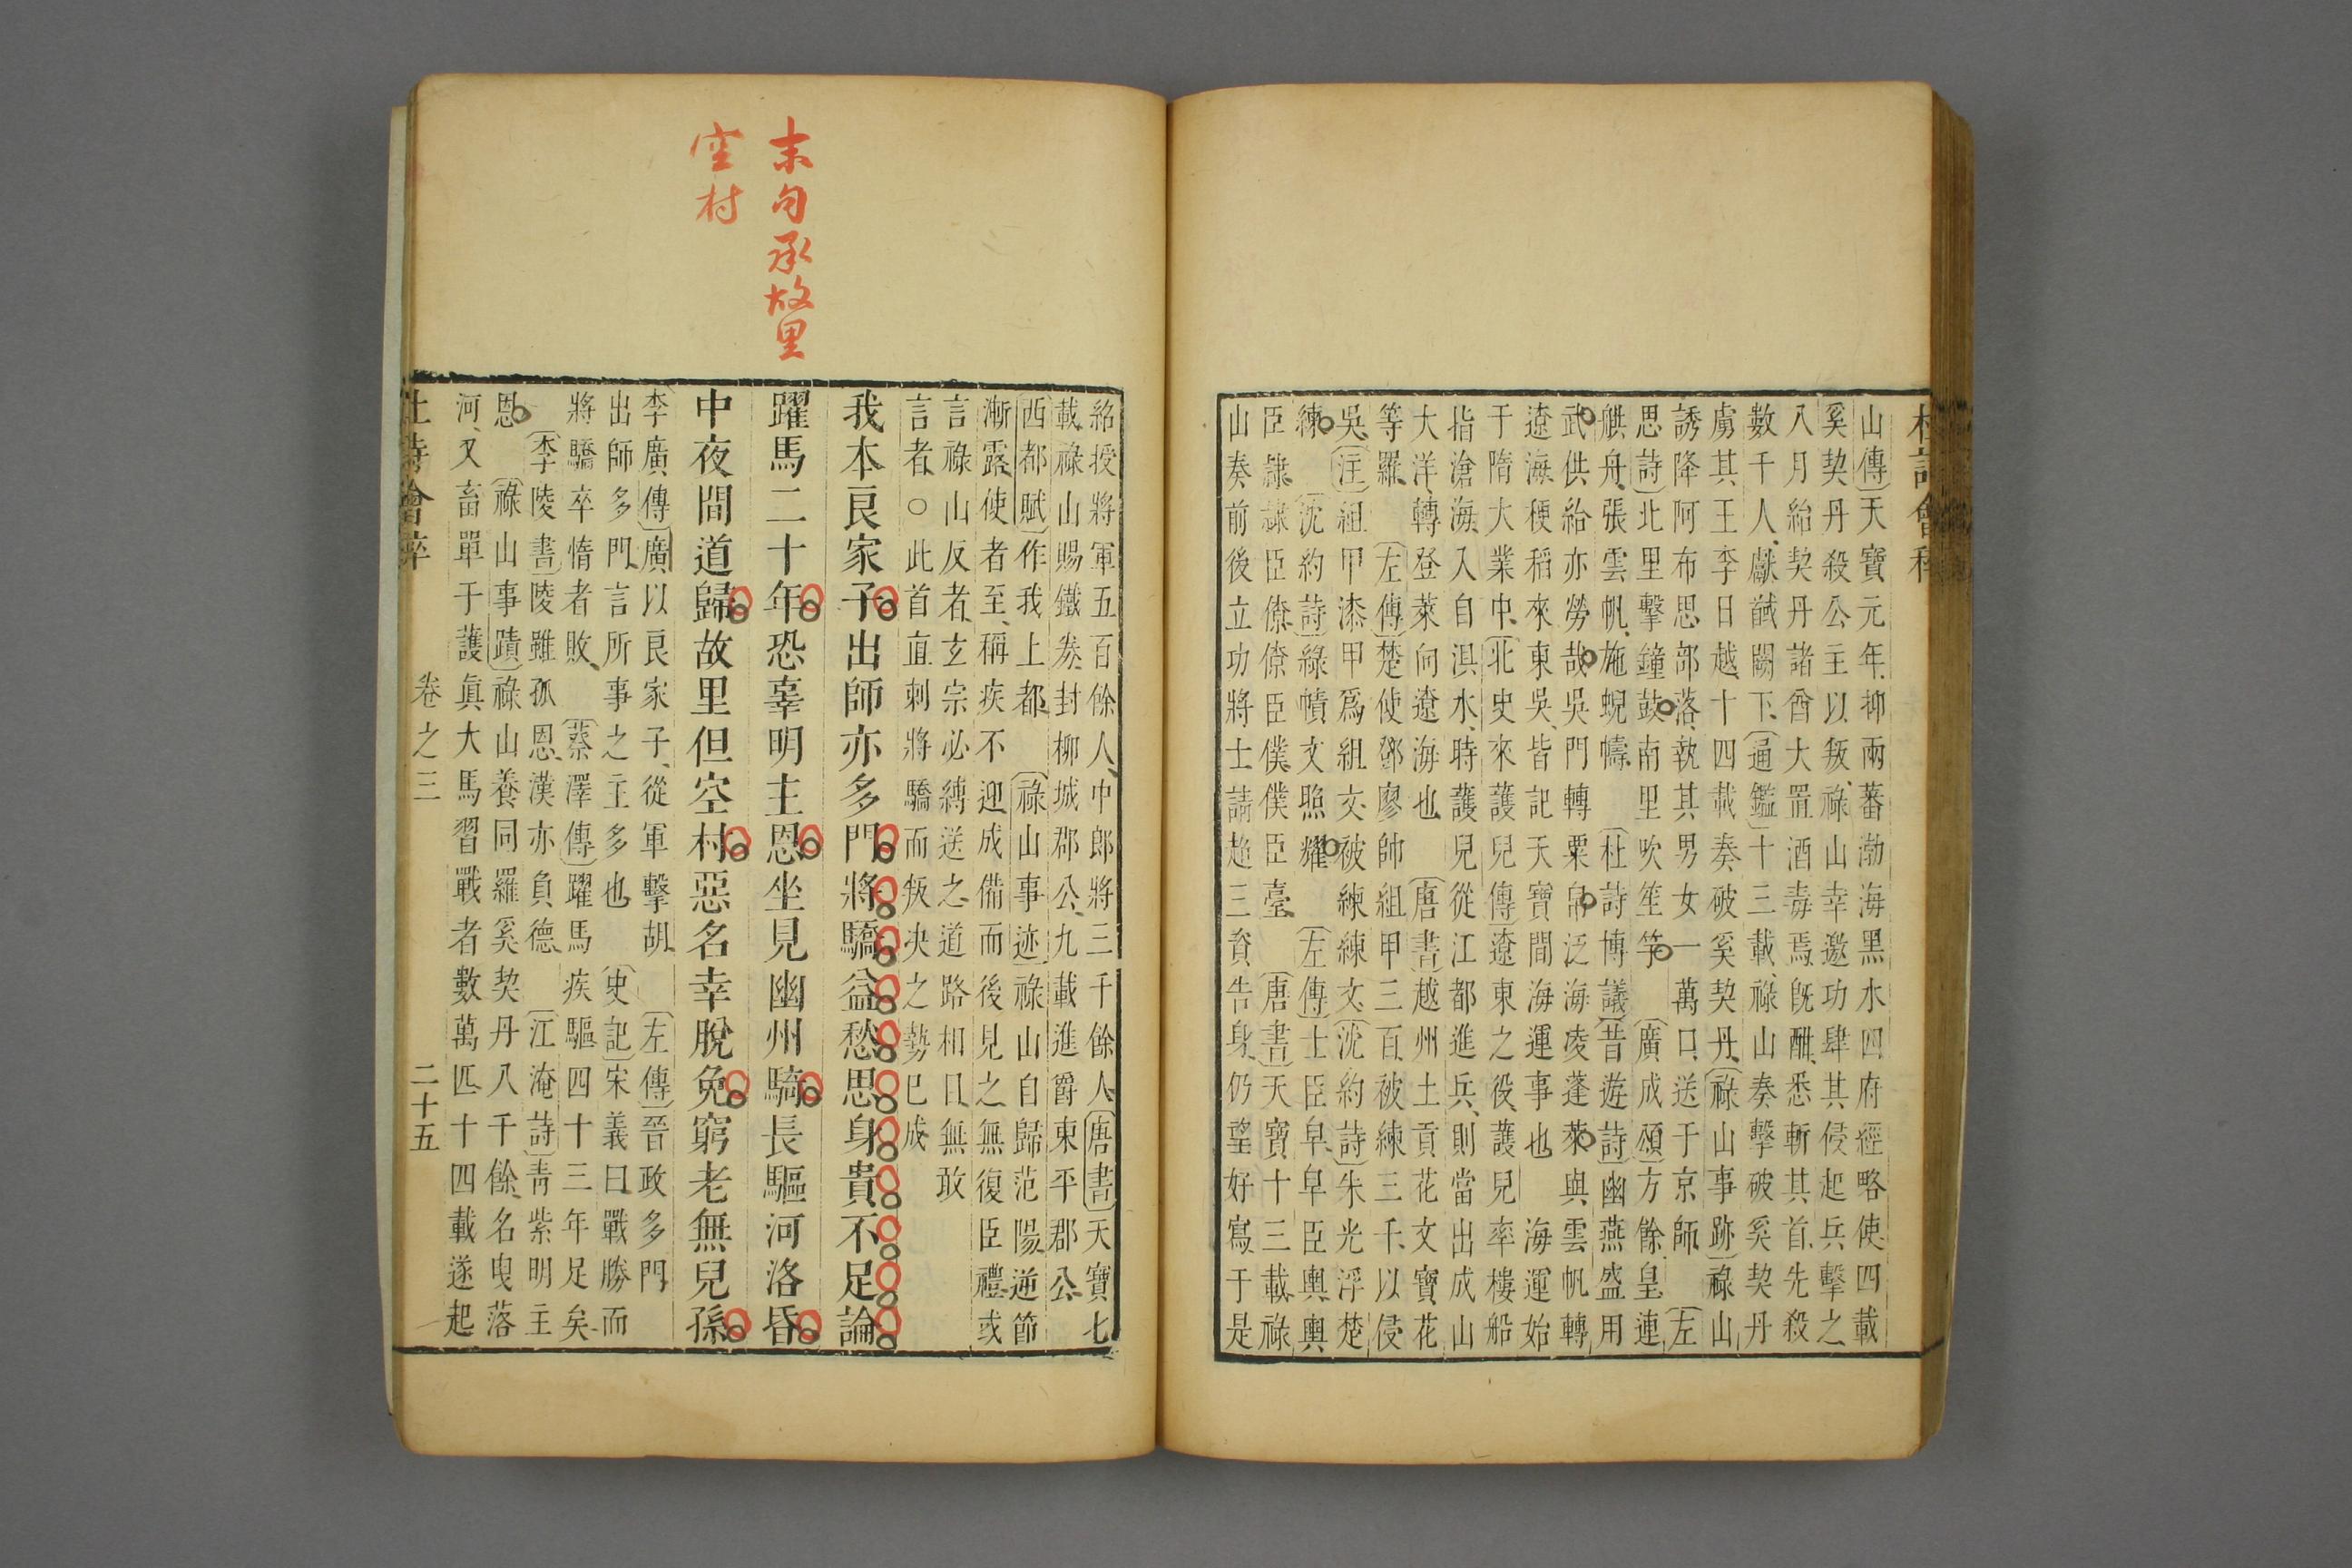 山傳天寶元年抑兩蕃渤海黑水四府經略使四載
奚契丹殺公主以叛祿山幸邀功肆其侵起兵擊之
八月紿契丹諸酋大置酒毒焉旣酣悉斬其首先殺
數千人獻馘闕下通鑑十三載祿山奏擊破奚契丹
虜其王李日越十四載奏破奚契丹祿山事跡祿山
誘降阿布思部落執其男女一萬口送于京師左
思詩北里擊鐘鼓南里吹笙竽廣成頌方餘皇連
艍舟張雲帆施蜺幬杜詩博議昔遊詩幽燕盛用
武供給亦勞哉吳門轉粟帛泛海凌蓬萊與雲帆轉
遼海稉稻來東吳皆記天寶間海運事也海運始
于隋大業中北史來護兒傳遼東之役護兒率樓船
指滄海入自浿水時護兒從江都進兵則當出成山
大洋轉登萊向遼海也唐書越州土貢花文寶花
等羅左傳楚使鄧廖帥組甲三百被練三千以侵
吳注組甲漆甲爲組文被練練文沈約詩朱光浮楚
練沈約詩綠幘文照耀左傳士臣皁皁臣輿輿
臣隷隷臣僚僚臣僕僕臣臺唐書天寶十三載祿
山奏前後立功將士請超三資告身仍望好寫于是
末句承故里
空村
給授將軍五百餘人中郎將三千餘人唐書天寶七
載祿山賜鐵券封柳城郡公九載進爵東平郡公
西都賦作我上都祿山事迹祿山自歸范陽逆節
漸露使者至稱疾不迎成備而後見之無復臣禮或
言祿山反者玄宗必縛送之道路相目無敢
言者○此首直刺將驕而叛決之勢已成
我本良家子出師亦多門將驕益愁思身貴不足論
躍馬二十年恐辜明主恩坐見幽州騎長驅河洛昏
中夜間道歸故里但空村惡名幸脫免窮老無兒孫
李廣傳廣以良家子從軍擊胡左傳晉政多門
出師多門言所事之主多也史記宋義曰戰勝而
將驕卒惰者敗蔡澤傳躍馬疾驅四十三年足矣
李陵書陵雖孤恩漢亦負德江淹詩靑紫明主
恩祿山事蹟祿山養同羅奚契丹八千餘名曳落
河又畜單于護眞大馬習戰者數萬匹十四載遂起
卷之三
二十五